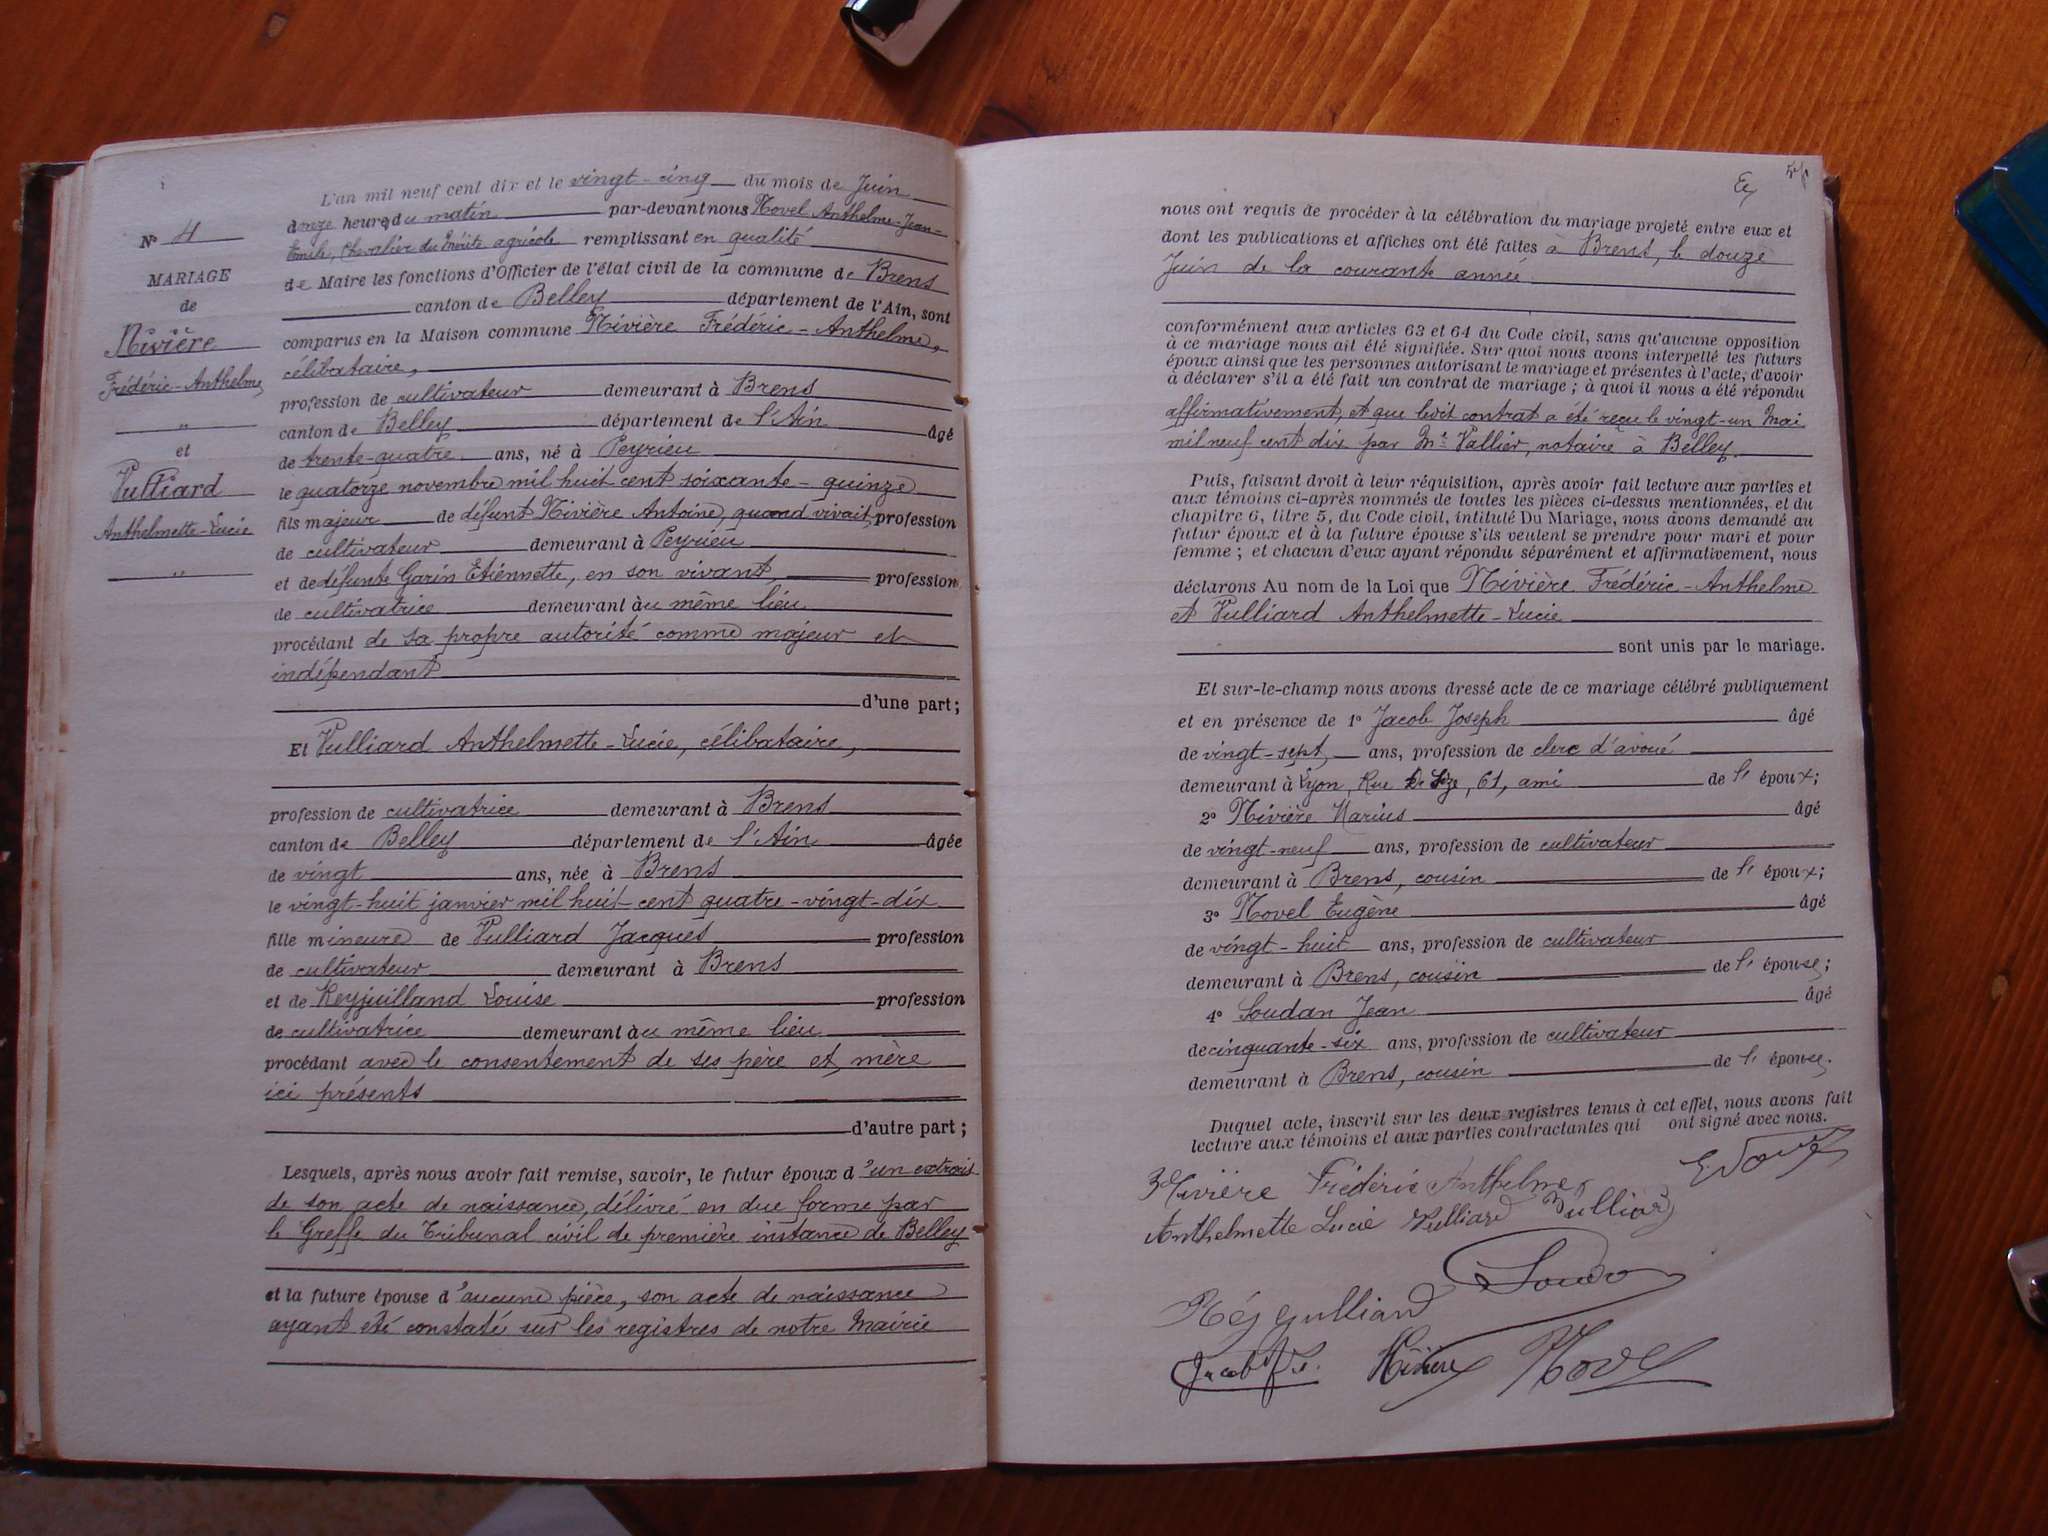 L'an mil neuf cent dix et le vingt-cinq du mois de Juin
onze heures du matin par-devant nous Novel Anthelme-Jean-
Emile, Chevalier du Mérite agricole remplissant en qualité
de Maire les fonctions d'Officier de l'état civil de la commune de Brens
canton de Belley département de l'Ain, sont
comparus en la Maison commune Nivière Frédéric-Anthelme,
célibataire,
profession de cultivateur demeurant à Brens
canton de Belley département de l'Ain âgé
de trente-quatre ans, né à Peyrieu
le quatorze novembre mil huit cent soixante-quinze
fils majeur de défunt Nivière Antoine, quand vivait, profession
de cultivateur demeurant à Peyrieu
et de défunte Garin Etiennette, en son vivant, profession
de cultivatrice demeurant au même lieu
procédant de sa propre autorité comme majeur et
indépendant
d'une part;
Et Vulliard Anthelmette-Lucie, célibataire,
profession de cultivatrice demeurant à Brens
canton de Belley département de l'Ain âgée
de vingt ans, née à Brens
le vingt-huit janvier mil huit cent quatre-vingt-dix
fille mineure de Vulliard Jacques profession
de cultivateur demeurant à Brens
et de Reyjuilland Louise profession
de cultivatrice demeurant au même lieu
procédant avec le consentement de ses père et mère
ici présents
d'autre part;
Lesquels, après nous avoir fait remise, savoir, le futur époux d'un extrait
de son acte de naissance, délivré en due forme par
le Greffe du Tribunal civil de première instance de Belley
et la future épouse d'aucune pièce, son acte de naissance
ayant été constaté sur les registres de notre Mairie
No 4
MARIAGE
de
Nivière
Frédéric-Anthelme
"
et
Vulliard
Anthelmette-Lucie
"
nous ont requis de procéder à la célébration du mariage projeté entre eux et
dont les publications et affiches ont été faites à Brens, le douze
Juin de la courante année
conformément aux articles 63 et 64 du Code civil, sans qu'aucune opposition
à ce mariage nous ait été signifiée. Sur quoi nous avons interpellé les futurs
époux ainsi que les personnes autorisant le mariage et présentes à l'acte, d'avoir
à déclarer s'il a été fait un contrat de mariage; à quoi il nous a été répondu
affirmativement, et que ledit contrat a été reçu le vingt-un Mai
mil neuf cent dix par Me Vallier, notaire à Belley.
Puis, faisant droit à leur réquisition, après avoir fait lecture aux parties et
aux témoins ci-après nommés de toutes les pièces ci-dessus mentionnées, et du
chapitre 6, titre 5, du Code civil, intitulé Du Mariage, nous avons demandé au
futur époux et à la future épouse s'ils veulent se prendre pour mari et pour
femme; et chacun d'eux ayant répondu séparément et affirmativement, nous
déclarons Au nom de la Loi que Nivière Frédéric-Anthelme
et Vulliard Anthelmette-Lucie
sont unis par le mariage.
Et sur-le-champ nous avons dressé acte de ce mariage célébré publiquement
et en présence de 1o Jacob Joseph âgé
de vingt-sept ans, profession de clerc d'avoué
demeurant à Lyon, Rue de Sèze, 61, ami de l'époux;
2o Nivière Marius âgé
de vingt-neuf ans, profession de cultivateur
demeurant à Brens, cousin de l'époux;
3o Novel Eugène âgé
de vingt-huit ans, profession de cultivateur
demeurant à Brens, cousin de l'épouse;
4o Soudan Jean âgé
de cinquante-six ans, profession de cultivateur
demeurant à Brens, cousin de l'épouse.
Duquel acte, inscrit sur les deux registres tenus à cet effet, nous avons fait
lecture aux témoins et aux parties contractantes qui ont signé avec nous.
Nivière Frédéric Anthelme
Anthelmette Lucie Vulliard Vulliard
Jacob Js. Nivière Novel